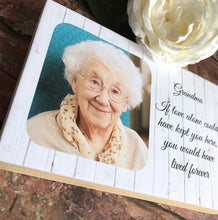 Grandma
If love alone could
have kept you here,
you would have
lived forever